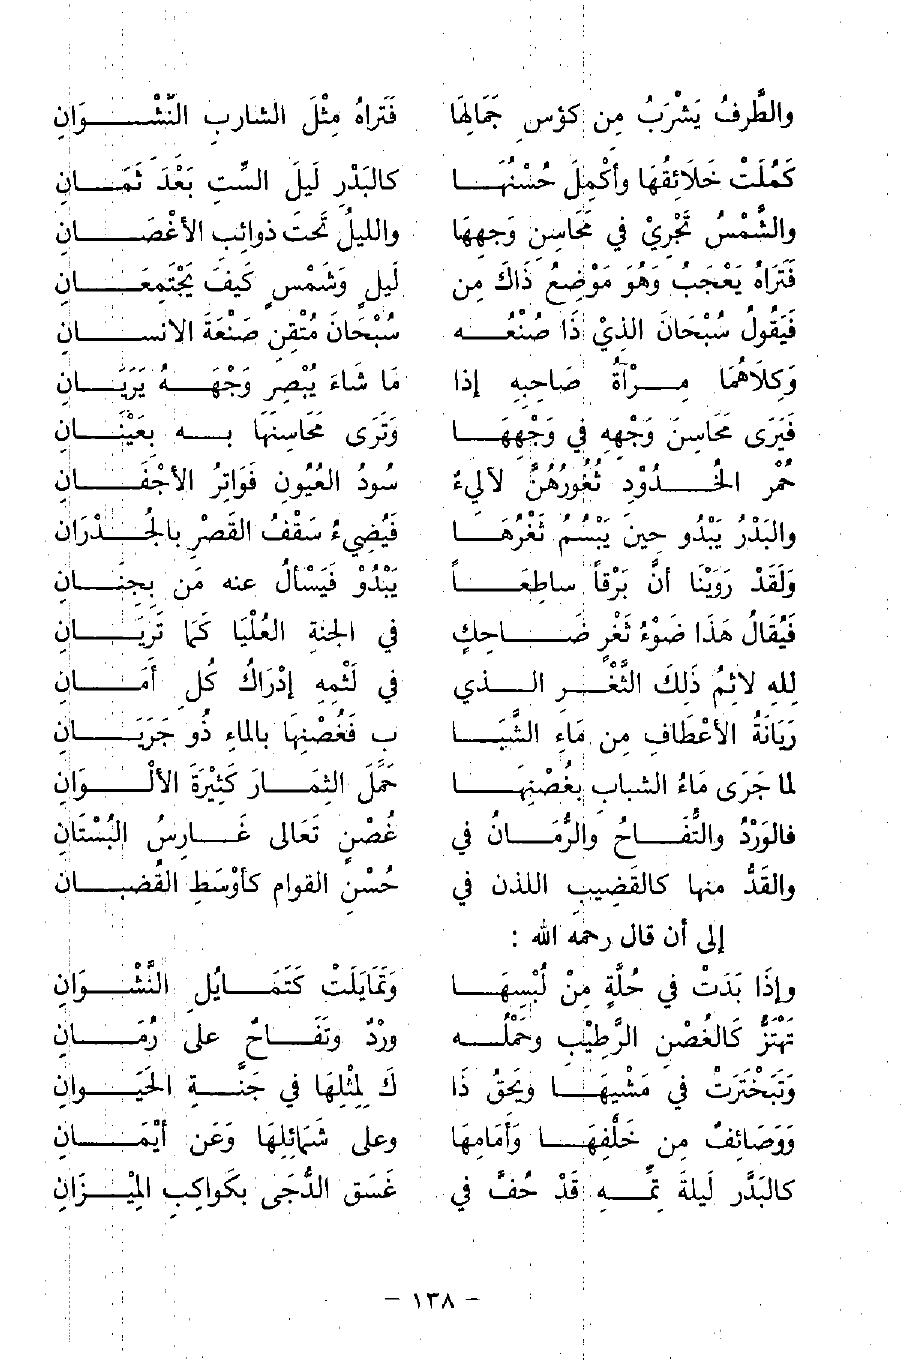 والطَّرفُ يَشْرَبُ مِن كؤسِ جَمَالِهَا فَتَراهُ مِثْلَ الشاربِ النَّشْوَانِ
كَمُلَتْ خَلَائِقُهَا وأكْمِلَ حُسْنُهَا كالبَدْرِ لَيلَ السِّتِ بَعْدَ ثَمَانِ
والشَّمْسُ تَجْرِيْ في مَحَاسِنِ وَجهِهَا والليلُ تَحْتَ ذوائبِ الأغْصَانِ
فَتَراهُ يَعْجَبُ وَهُوَ مَوْضِعُ ذَاكَ مِن لَيلٍ وَشَمْسٍ كيفَ يَجْتَمِعَانِ
فَيَقُولُ سُبْحَانَ الذيْ ذَا صُنْعُه سُبْحَانَ مُتْقِنِ صَنْعَةَ الانسانِ
وَكِلَاهُمَا مِرْآةُ صَاحِبِهِ إذا مَا شَاءَ يُبْصِر وَجْهَهُ يَرَيَانِ
فَيَرَى مَحَاسِنَ وَجْهِهِ في وَجْهِهَا وَتَرَى مَحَاسِنَها بِهِ بِعَيْنَانِ
حُمْر الخُدُوْدِ ثُغُورُهُنَّ لآليءٌ سُودُ العُيُونِ فَوَاتِرُ الأجْفَانِ
والبَدْرُ يَبْدُو حِينَ يَبْسُمُ ثَغْرُهَا فَيُضِيءُ سَقْفُ القَصْرِ بالجُدْرَانِ
وَلَقَدْ رَوَيْنَا أنَّ بَرْقاً ساطِعَاً يَبْدُوْ فَيَسْألُ عنه مَن بِجِنَانِ
فَيُقَالُ هَذَا ضَوْءُ ثَغْرٍ ضَاحِكٍ في الجنةِ العُلْيَا كَمَا تَرَيَانِ
لِلهِ لاثِمُ ذَلِكَ الثَّغْرِ الذي في لَثْمِهِ إدْرَاكُ كُلِ أمَانِ
رَيَانَةُ الأعْطَافِ مِن مَاءِ الشَّبَا بِ فَغُصْنِهَا بالماءِ ذُو جَرَيَانِ
لما جَرَى مَاءُ الشبابِ بِغُصْنِهَا حَمَلَ الثِمَارَ كَثِيْرَةَ الألْوَانِ
فالوَرْدُ والتُّفَاحُ والرُّمَانُ في غُصْنٍ تَعَالى غَارِسُ البُسْتَانِ
والقَدُّ منها كالقَضِيبِ اللدْنِ في حُسْنِ القوامِ كأوْسَطِ القُضبانِ
إلى أن قال رحمه الله :
وإذَا بَدَتْ في حُلَّةٍ مِنْ لُبْسِهَا وَتَمَايَلَتْ كَتَمَايُلِ النَّشْوَانِ
تَهْتَزُّ كَالغُصْنِ الرَّطِيْبِ وحَمْلُه ورْدٌ وتَفَاحٌ على رُمَانِ
وَتَبَخْتَرَتْ في مَشْيِهَا ويَحِقُ ذَا كَ لِمِثْلِهَا في جَنَّةِ الحَيَوانِ
وَوَصَائفٌ مِن خَلْفِهَا وَأَمَامِهَا وعلى شَمَائِلِهَا وَعَن أَيْمَانِ
كالبَدْرِ لَيلَةَ تِمِّهِ قَدْ حُفَّ في غَسَقِ الدُّجَى بكَواكِبِ المِيْزَانِ
– ١٣٨ –